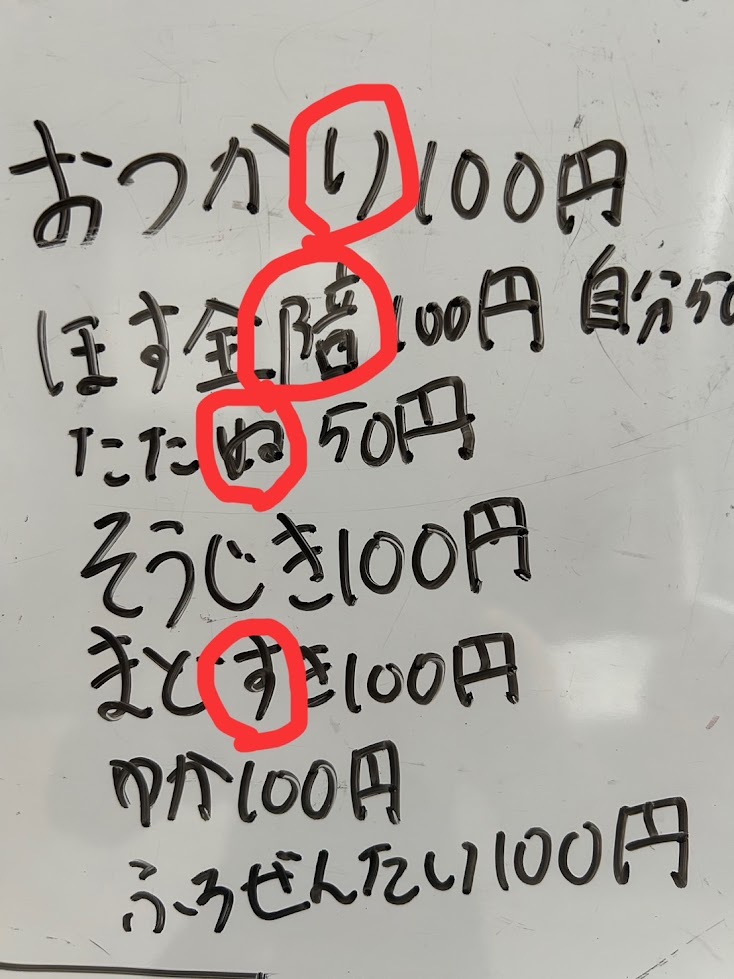 おつかり100円
ほす全陪100円 自分50
たたぬ 50円
そうじき100円
まどすき100円
ゆか100円
ふろぜんたい100円